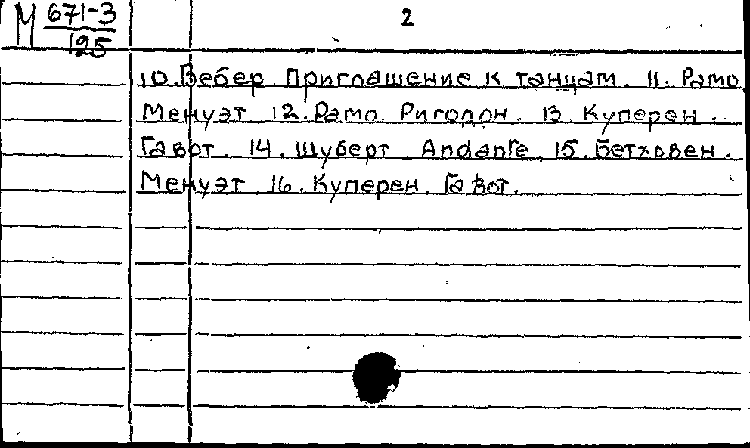 М 671-3
125
2
10. Вебер Приглашение к танцам. 11. Рамо
Менуэт 12. Рамо Ригодон. 13. Куперен.
Гавот. 14. Шуберт Andante 15. Бетховен.
Менуэт 16. Куперен. Гавот.